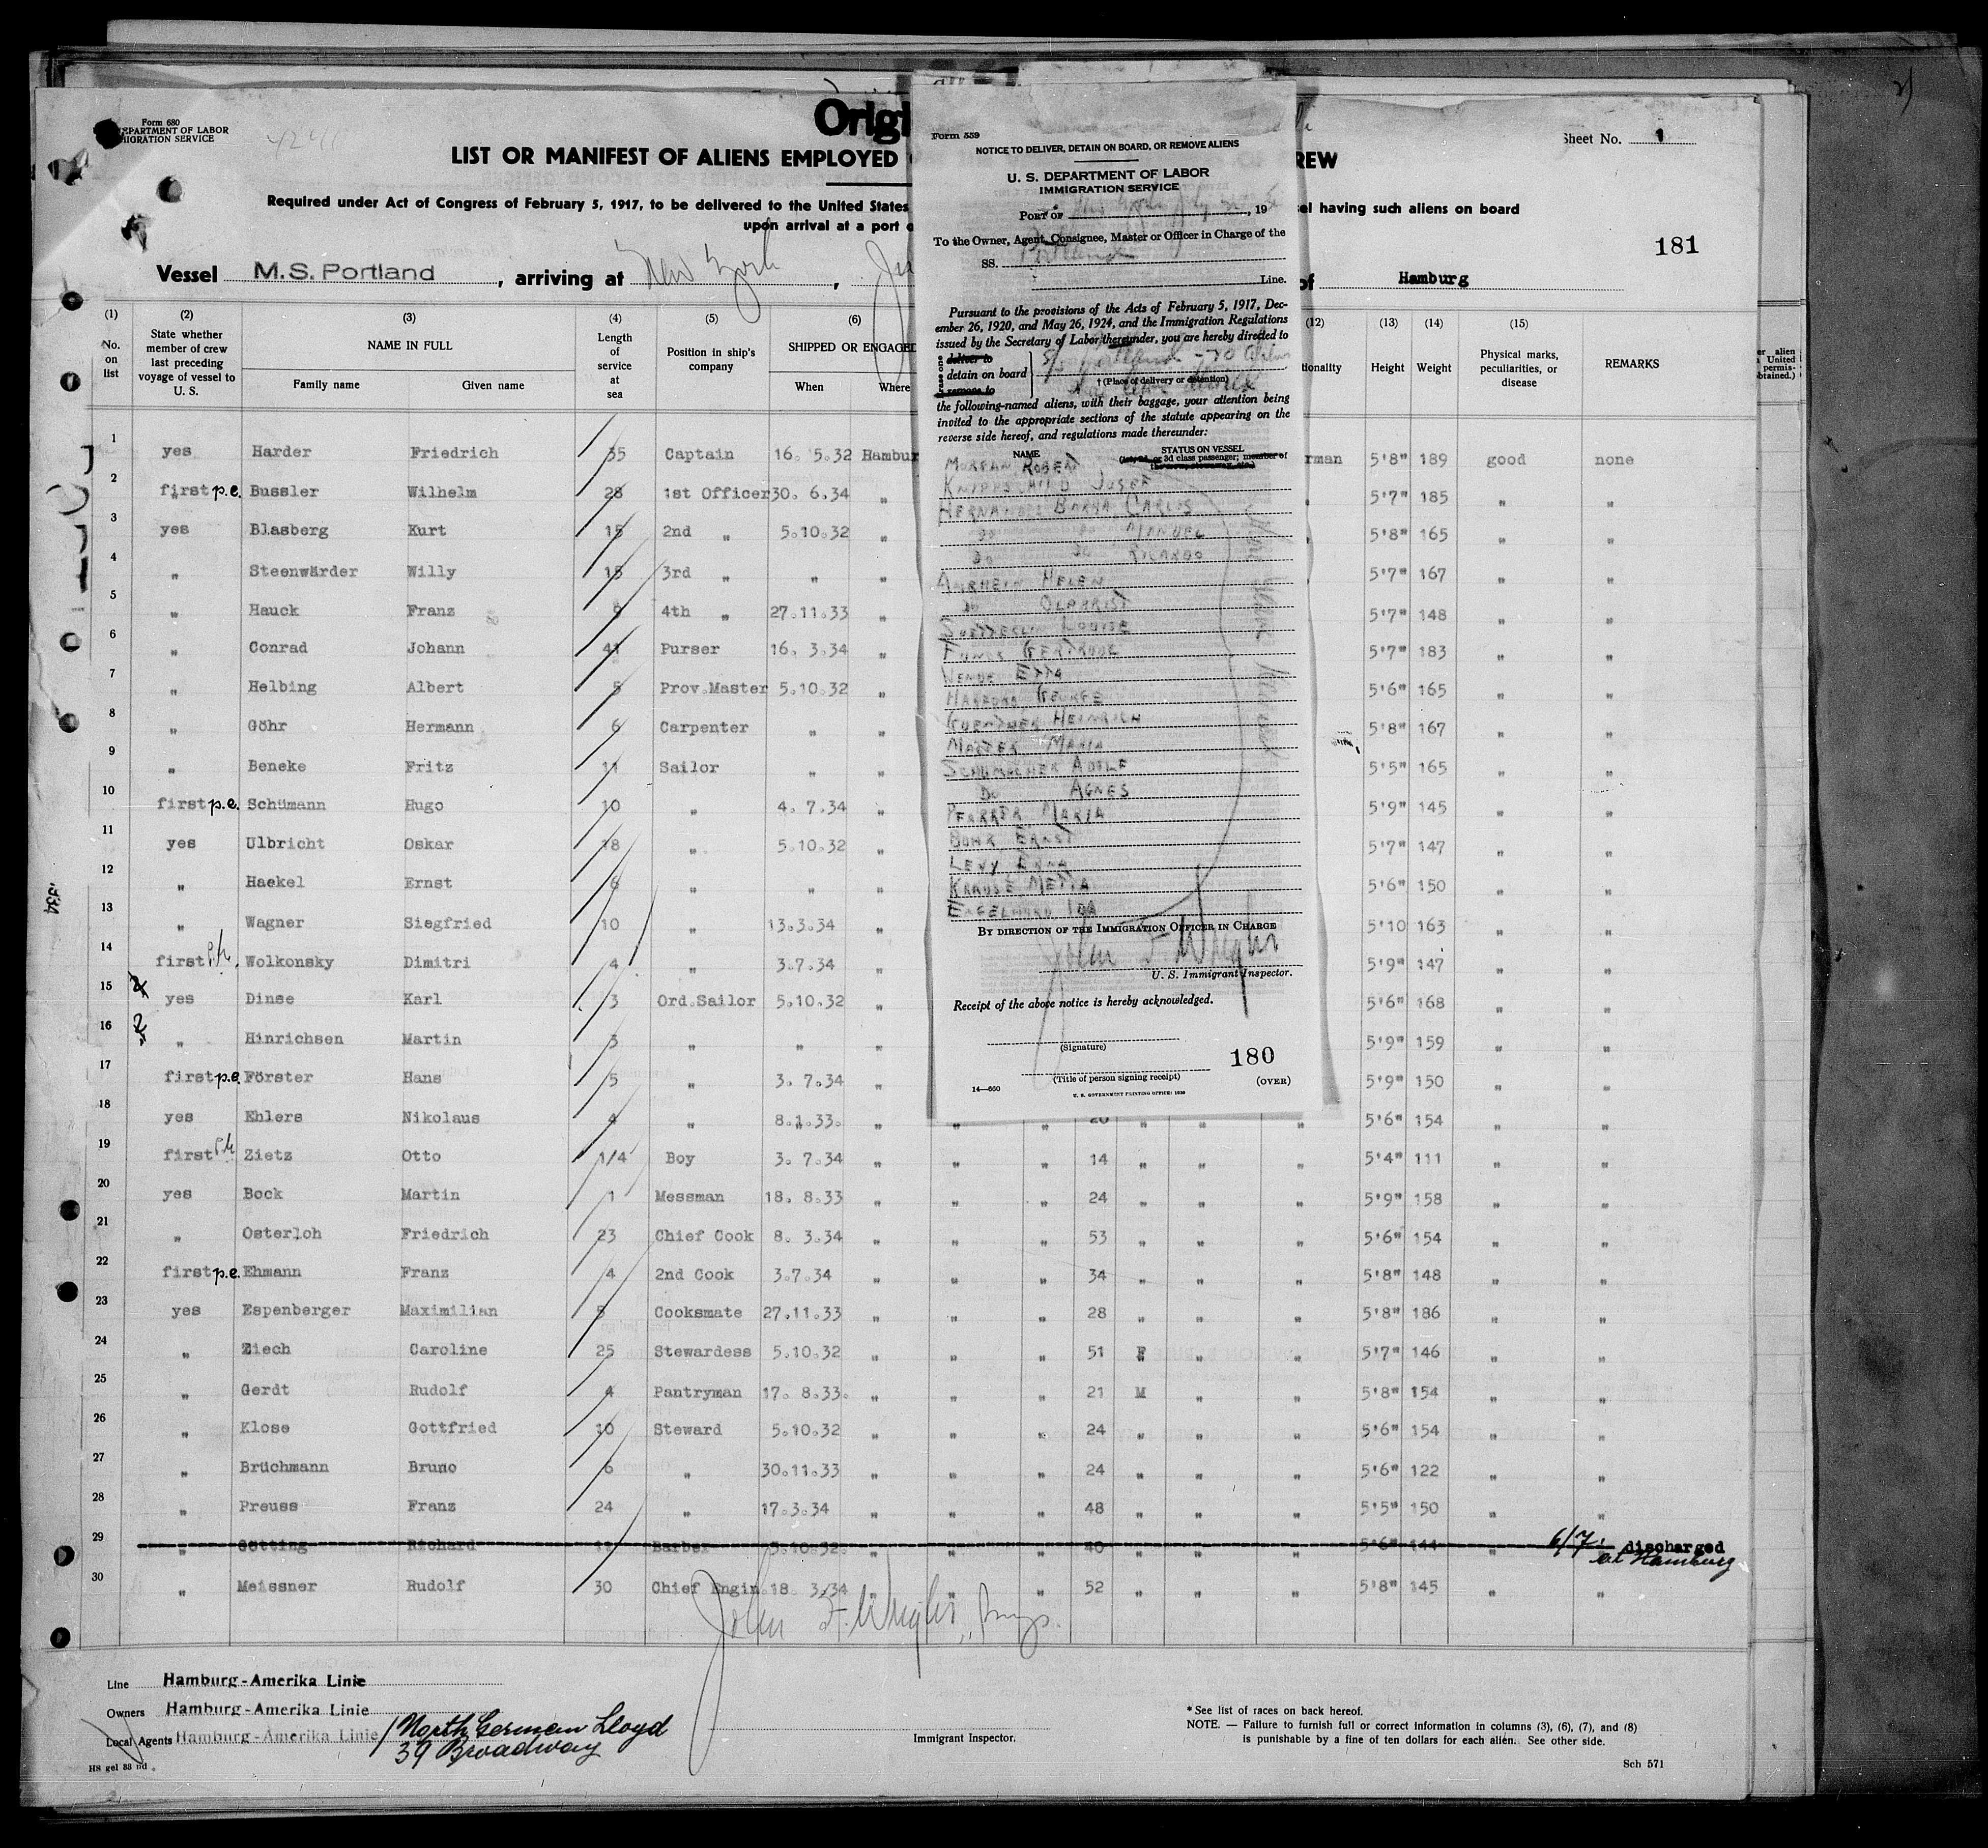 Form 680
DEPARTMENT OF LABOR
IMMIGRATION SERVICE
Origi
Sheet No. 1
LIST OR MANIFEST OF ALIENS EMPLOYED
REW
Required under Act of Congress of February 5, 1917, to be delivered to the United States
el having such aliens on board
upon arrival at a port o
181
Vessel M.S. Portland, arriving at New York,
of Hamburg
(1) (2) (3) (4) (5) (6) (12) (13) (14) (15)
No. on list
State whether member of crew last preceding voyage of vessel to U. S.
NAME IN FULL
Family name Given name
Length of service at sea
Position in ship's company
SHIPPED OR ENGAGED
When Where
tionality Height Weight
Physical marks, peculiarities, or disease
REMARKS
1 yes Harder Friedrich 35 Captain 16. 5.32 Hambur rman 5'8" 189 good none
2 first p.e. Bussler Wilhelm 28 1st Officer 30. 6.34 " " 5'7" 185 " "
3 yes Blasberg Kurt 15 2nd " 5.10.32 " 5'8" 165 " "
4 " Steenwärder Willy 15 3rd " " " 5'7" 167 " "
5 " Hauck Franz 8 4th " 27.11.33 " 5'7" 148 " "
6 " Conrad Johann 41 Purser 16. 3.34 " 5'7" 183 " "
7 " Helbing Albert 5 Prov.Master 5.10.32 " 5'6" 165 " "
8 " Göhr Hermann 6 Carpenter " " 5'8" 167 " "
9 " Beneke Fritz 11 Sailor " " 5'5" 165 " "
10 first p.e. Schümann Hugo 10 " 4. 7.34 " 5'9" 145 " "
11 yes Ulbricht Oskar 18 " 5.10.32 " 5'7" 147 " "
12 " Haekel Ernst 6 " " " 5'6" 150 " "
13 " Wagner Siegfried 10 " 13.3.34 " 5'10 163 " "
14 first Wolkonsky Dimitri 4 " 3.7.34 " 5'9" 147 " "
15 yes Dinse Karl 3 Ord.Sailor 5.10.32 " 5'6" 168 " "
16 " Hinrichsen Martin 3 " " " 5'9" 159 " "
17 first p.e. Förster Hans 5 " 3. 7.34 " 5'9" 150 " "
18 yes Ehlers Nikolaus 4 " 8.1.33. " " " 20 " " " 5'6" 154 " "
19 first Zietz Otto 1/4 Boy 3. 7.34 " " " 14 " " " 5'4" 111 " "
20 yes Bock Martin 1 Messman 18. 8.33 " " " 24 " " " 5'9" 158 " "
21 " Osterloh Friedrich 23 Chief Cook 8. 3.34 " " " 53 " " " 5'6" 154 " "
22 first p.e. Ehmann Franz 4 2nd Cook 3.7.34 " " " 34 " " " 5'8" 148 " "
23 yes Espenberger Maximilian 5 Cooksmate 27.11.33 " " " 28 " " " 5'8" 186 " "
24 " Ziech Caroline 25 Stewardess 5.10.32 " " " 51 F " " 5'7" 146 " "
25 " Gerdt Rudolf 4 Pantryman 17. 8.33. " " " 21 M " " 5'8" 154 " "
26 " Klose Gottfried 10 Steward 5.10.32 " " " 24 " " " 5'6" 154 " "
27 " Brüchmann Bruno 6 " 30.11.33 " " " 24 " " " 5'6" 122 " "
28 " Preuss Franz 24 " 17.3.34 " " " 48 " " " 5'5" 150 " "
29 " Götting Richard 11 Barber 5.10.32. " " " 40 " " " 5'6" 144 " 6/7. discharged
at Hamburg
30 " Meissner Rudolf 30 Chief Engin 18. 3.34 " " " 52 " " " 5'8" 145 " "
John F. Wright
Line Hamburg-Amerika Linie
Owners Hamburg-Amerika Linie
Local Agents Hamburg-Amerika Linie / North German Lloyd
39 Broadway
Immigrant Inspector.
* See list of races on back hereof.
NOTE. — Failure to furnish full or correct information in columns (3), (6), (7), and (8)
is punishable by a fine of ten dollars for each alien. See other side.
HS gel 33 nd
Sch 571
Form 559
NOTICE TO DELIVER, DETAIN ON BOARD, OR REMOVE ALIENS
U. S. DEPARTMENT OF LABOR
IMMIGRATION SERVICE
PORT OF New York, 19
To the Owner, Agent, Consignee, Master or Officer in Charge of the
SS. Portland
Line.
Pursuant to the provisions of the Acts of February 5, 1917, Dec-
ember 26, 1920, and May 26, 1924, and the Immigration Regulations
issued by the Secretary of Labor thereunder, you are hereby directed to
Erase one
deliver to
detain on board
remove to
S/S Portland
† (Place of delivery or detention)
the following-named aliens, with their baggage, your attention being
invited to the appropriate sections of the statute appearing on the
reverse side hereof, and regulations made thereunder:
NAME STATUS ON VESSEL
(1st, 2d, or 3d class passenger; member of
MORFAN ROBERT
JOSEF
HERNANDEZ CARLOS
DO DO MANUEL
DO DO RICARDO
ANRHEIN HELEN
DO
LOUISE
FUNCK GERTRUDE
WENDE ETTA
GEORGE
GUENTHER HEINRICH
MARIA
SCHUMACHER ADOLF
DO AGNES
PFARRER MARIA
BOHR ERNST
LEVY ERNA
KRAUSE METTA
ENGELHARD IDA
BY DIRECTION OF THE IMMIGRATION OFFICER IN CHARGE
John F. Wright
U. S. Immigrant Inspector.
Receipt of the above notice is hereby acknowledged.
(Signature)
180
(Title of person signing receipt)
(OVER)
14—660
U. S. GOVERNMENT PRINTING OFFICE: 1930
er alien
United
permis-
btained.)